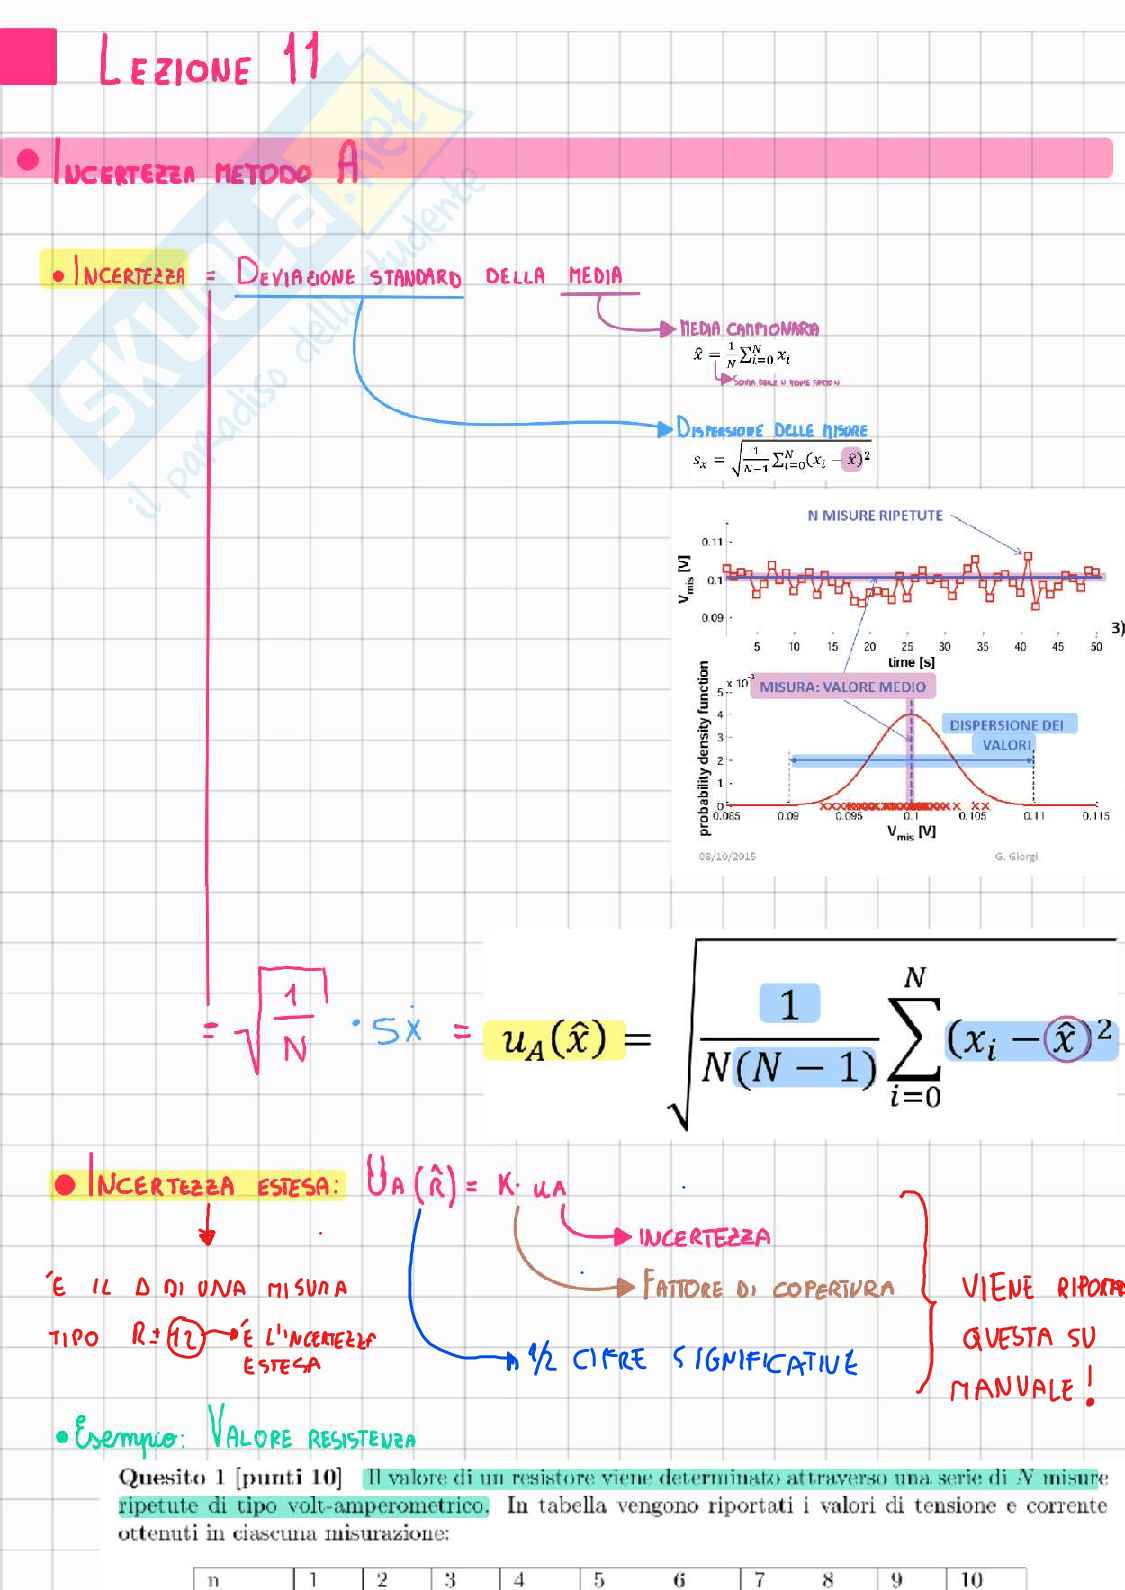 LEZIONE 11
• INCERTEZZA METODO A
SKUOLA.net
il paradiso dello studente
• INCERTEZZA = DEVIAZIONE STANDARD DELLA MEDIA
MEDIA CAMPIONARIA
x̂ = 1/N ∑_{i=0}^{N} x_i
DISPERSIONE DELLE MISURE
s_x = √(1/(N−1) ∑_{i=0}^{N} (x_i − x̂)²)
N MISURE RIPETUTE
V_mis [V]
0.11
0.1
0.09
5 10 15 20 25 30 35 40 45 50
time [s]
3)
MISURA: VALORE MEDIO
DISPERSIONE DEI
VALORI
probability density function
5 4 3 2 1 0
0.085 0.09 0.095 0.1 0.105 0.11 0.115
V_mis [V]
08/10/2015 G. Giorgi
= √(1/N) · sx̂ = u_A(x̂) = √(1/(N(N − 1)) ∑_{i=0}^{N} (x_i − x̂)²)
• INCERTEZZA ESTESA: U_A (R̂) = K · uA
INCERTEZZA
FATTORE DI COPERTURA
1/2 CIFRE SIGNIFICATIVE
È IL Δ DI UNA MISURA
TIPO R ± 12 È L'INCERTEZZA
ESTESA
VIENE RIPORTA
QUESTA SU
MANUALE!
• Esempio: VALORE RESISTENZA
Quesito 1 [punti 10] Il valore di un resistore viene determinato attraverso una serie di N misure
ripetute di tipo volt-amperometrico. In tabella vengono riportati i valori di tensione e corrente
ottenuti in ciascuna misurazione:
n 1 2 3 4 5 6 7 8 9 10